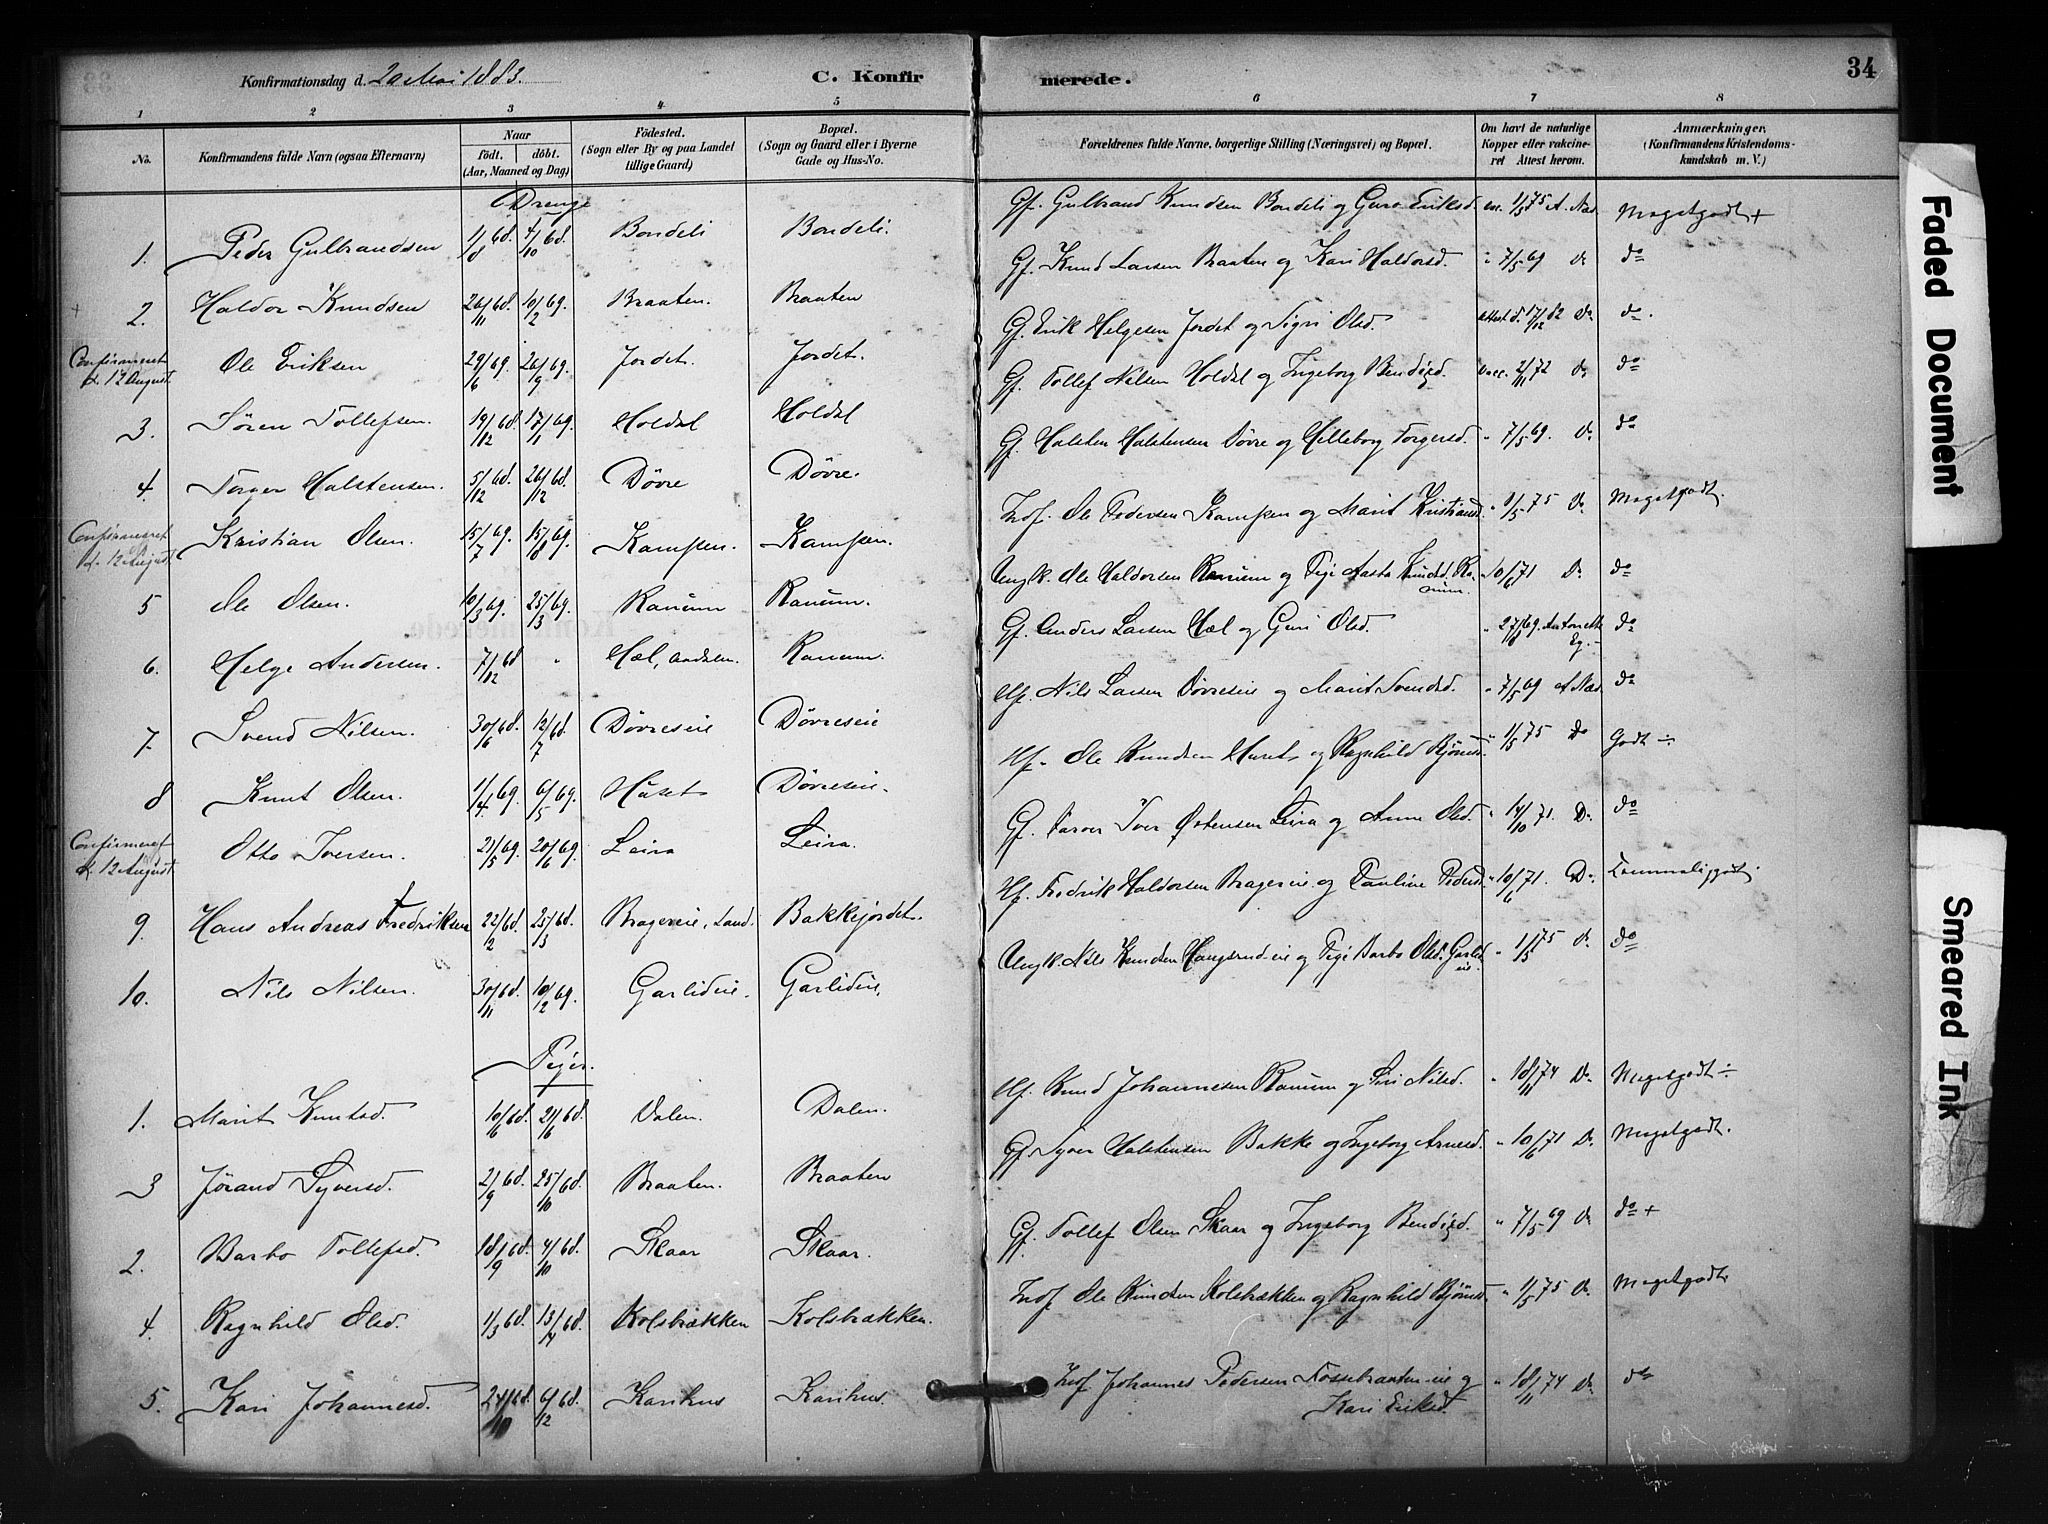 Konfirmationsdag d. 20 Mai 1883. C. Konfirmerede. 34
1 2 3 4 5 6 7 8
No. Konfirmandens fulde Navn (ogsaa Efternavn) Naar født. døbt. (Aar, Maaned og Dag) Fødested. (Sogn eller By og paa Landet tillige Gaard.) Bopæl. (Sogn og Gaard eller i Byerne Gade og Hus-No. Forældrenes fulde Navne, borgerlige Stilling (Næringsvei) og Bopæl. Om havt de naturlige Kopper eller vakcineret Attest herom. Anmærkninger. (Konfirmandens Kristendomskundskab m. V.)
Drenge
1. Peder Gulbrandsen 1/8 68. 4/10 68. Bondeli Bondeli. Gf. Gulbrand Knudsen Bondeli og Guro Eriksd. vac. 1/5 75 A. Næs. Megetgodt +
2. Haldor Knudsen 26/11 68. 10/2 69. Braaten. Braaten Gf. Knud Larsen Braaten og Kari Haldorsd. " 7/5 69 Do do
Confirmeret d. 12 August Ole Eriksen 29/6 69. 26/9 69. Jordet. Jordet. Gf. Erik Helgesen Jordet og Sigri Olsd. Attest d. 17/12 82 Do do.
3. Søren Tollefsen. 19/12 68. 17/1 69. Holdal Holdal Gf. Tollef Nilsen Holdal og Ingeborg Bendigsd. Vacc. 2/11 72 Do do
4. Torger Halstensen. 5/12 68. 26/12 68. Døvre Døvre. Gf. Halsten Halstensen Døvre og Helleborg Torgersd. " 7/5 69. Do do
Confirmeret d. 12 August Kristian Olsen. 15/7 69. 15/8 69. Kampen. Kampen. Indf. Ole Pedersen Kampen og Marit Kristiansd. " 1/5 75 Do Megetgodt.
5 Ole Olsen. 10/3 69. 25/3 69. Ranum Ranum. Ungk. Ole Haldorsen Ranum og Pige Aasta Knudsd. Ranum " 10/6 71 Do do
6. Helge Andersen. 7/12 68 " Hæl, Aadalen. Ranum. Gf. Anders Larsen Hæl og Guri Olsd. " 27/8 69. Do
7. Svend Nilsen. 30/6 68. 12/7 68. Døvreseie Døvreseie Hf. Nils Larsen Døvreseie og Marit Svendsd. " 7/5 69 A. Næs. do
8 Knut Olsen. 1/4 69. 6/5 69. Huset Døvreseie. Hf. Ole Knudsen Huset og Ragnhild Bjørnsd. " 1/5 75 Do Godt ÷
Confirmeret d. 12 August Otto Iversen. 21/5 69. 20/6 69. Leira Leira. Gf. Farver Iver Østensen Leira og Anne Olsd. " 14/10 71. Do do
9. Hans Andreas Fredriksen 22/2 68. 25/3 68. Bragereie, Land. Bakkejordet. Hf. Fredrik Haldorsen Bragereie og Pauline Pedersd. " 10/6 71. Do.
10. Nils Nilsen. 30/11 68. 10/12 69. Garlideie. Garlideie. Ungk. Nils Knudsen Haugsrud-eie og Pige Barbo Olsd. Garlideie. " 1/5 75 Do do
Piger.
1. Marit Knutsd. 10/6 68. 21/6 68. Dalen. Dalen. Hf. Knud Johannesen Ranum og Siri Nilsd. " 18/11 74 Do Megetgodt ÷
3 Jørand Syversd. 2/9 68. 25/10 68. Braaten. Braaten Gf. Syver Halstensen Bakke og Ingeborg Arnesd. " 10/6 71 Do Megetgodt.
2. Barbo Tollefsd. 18/9 68. 4/10 68. Skaar Skaar. Gf. Tollef Olsen Skaar og Ingeborg Bendigsd. " 7/5 69 Do do +
4. Ragnhild Olsd. 1/3 68. 13/4 68. Kolsbrækken Kolsbrækken. Indf Ole Knudsen Kolsbrækken og Ragnhild Bjørnsd. " 1/5 75 Do Megetgodt
5. Kari Johannesd. 24/10 68. 6/12 68. Karihus Karihus. Indf Johannes Pedersen Fossebraaten-eie og Kari Eriksd. " 18/11 74 Do do
Faded Document
Smeared Ink